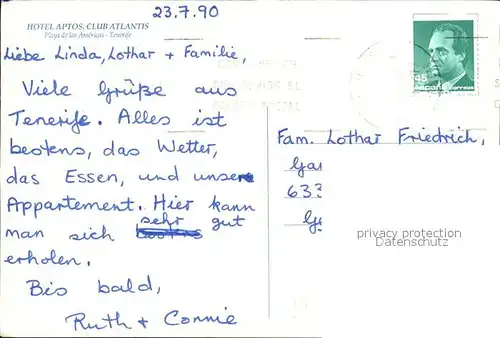 23.7.90
HOTEL APTOS. CLUB ATLANTIS
Playa de las Américas - Tenerife
Liebe Linda, Lothar + Familie,
Viele Grüße aus
Teneriffe. Alles ist
bestens, das Wetter,
das Essen, und unser
Appartement. Hier kann
man sich sehr gut
erholen.
Bis bald,
Ruth + Connie
45
Fam. Lothar Friedrich,
633
privacy protection
Datenschutz